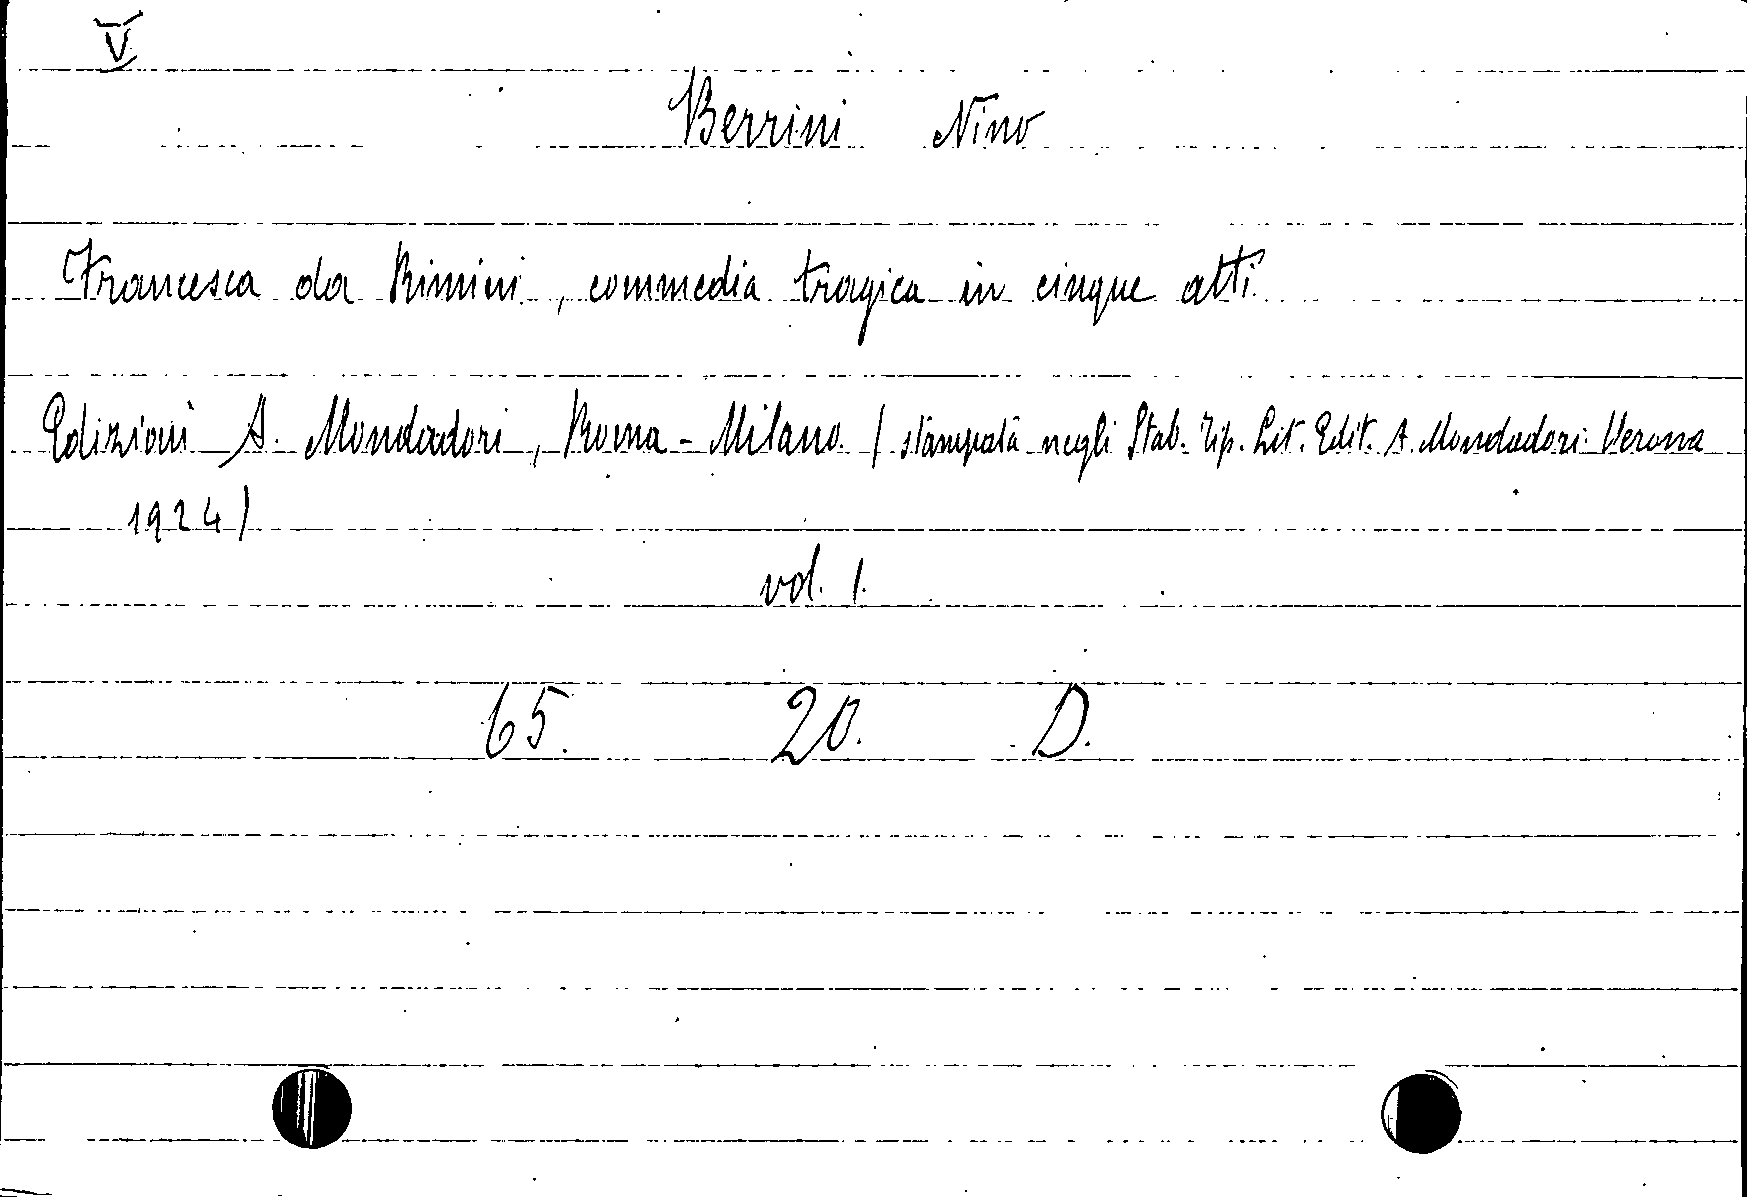 V
Berrini Nino
Francesca da Rimini, commedia tragica in cinque atti.
Edizioni A. Mondadori, Roma - Milano. (stampata negli Stab. Tip. Lit. Edit. A. Mondadori. Verona
1924)
vol. 1.
65. 20. D.